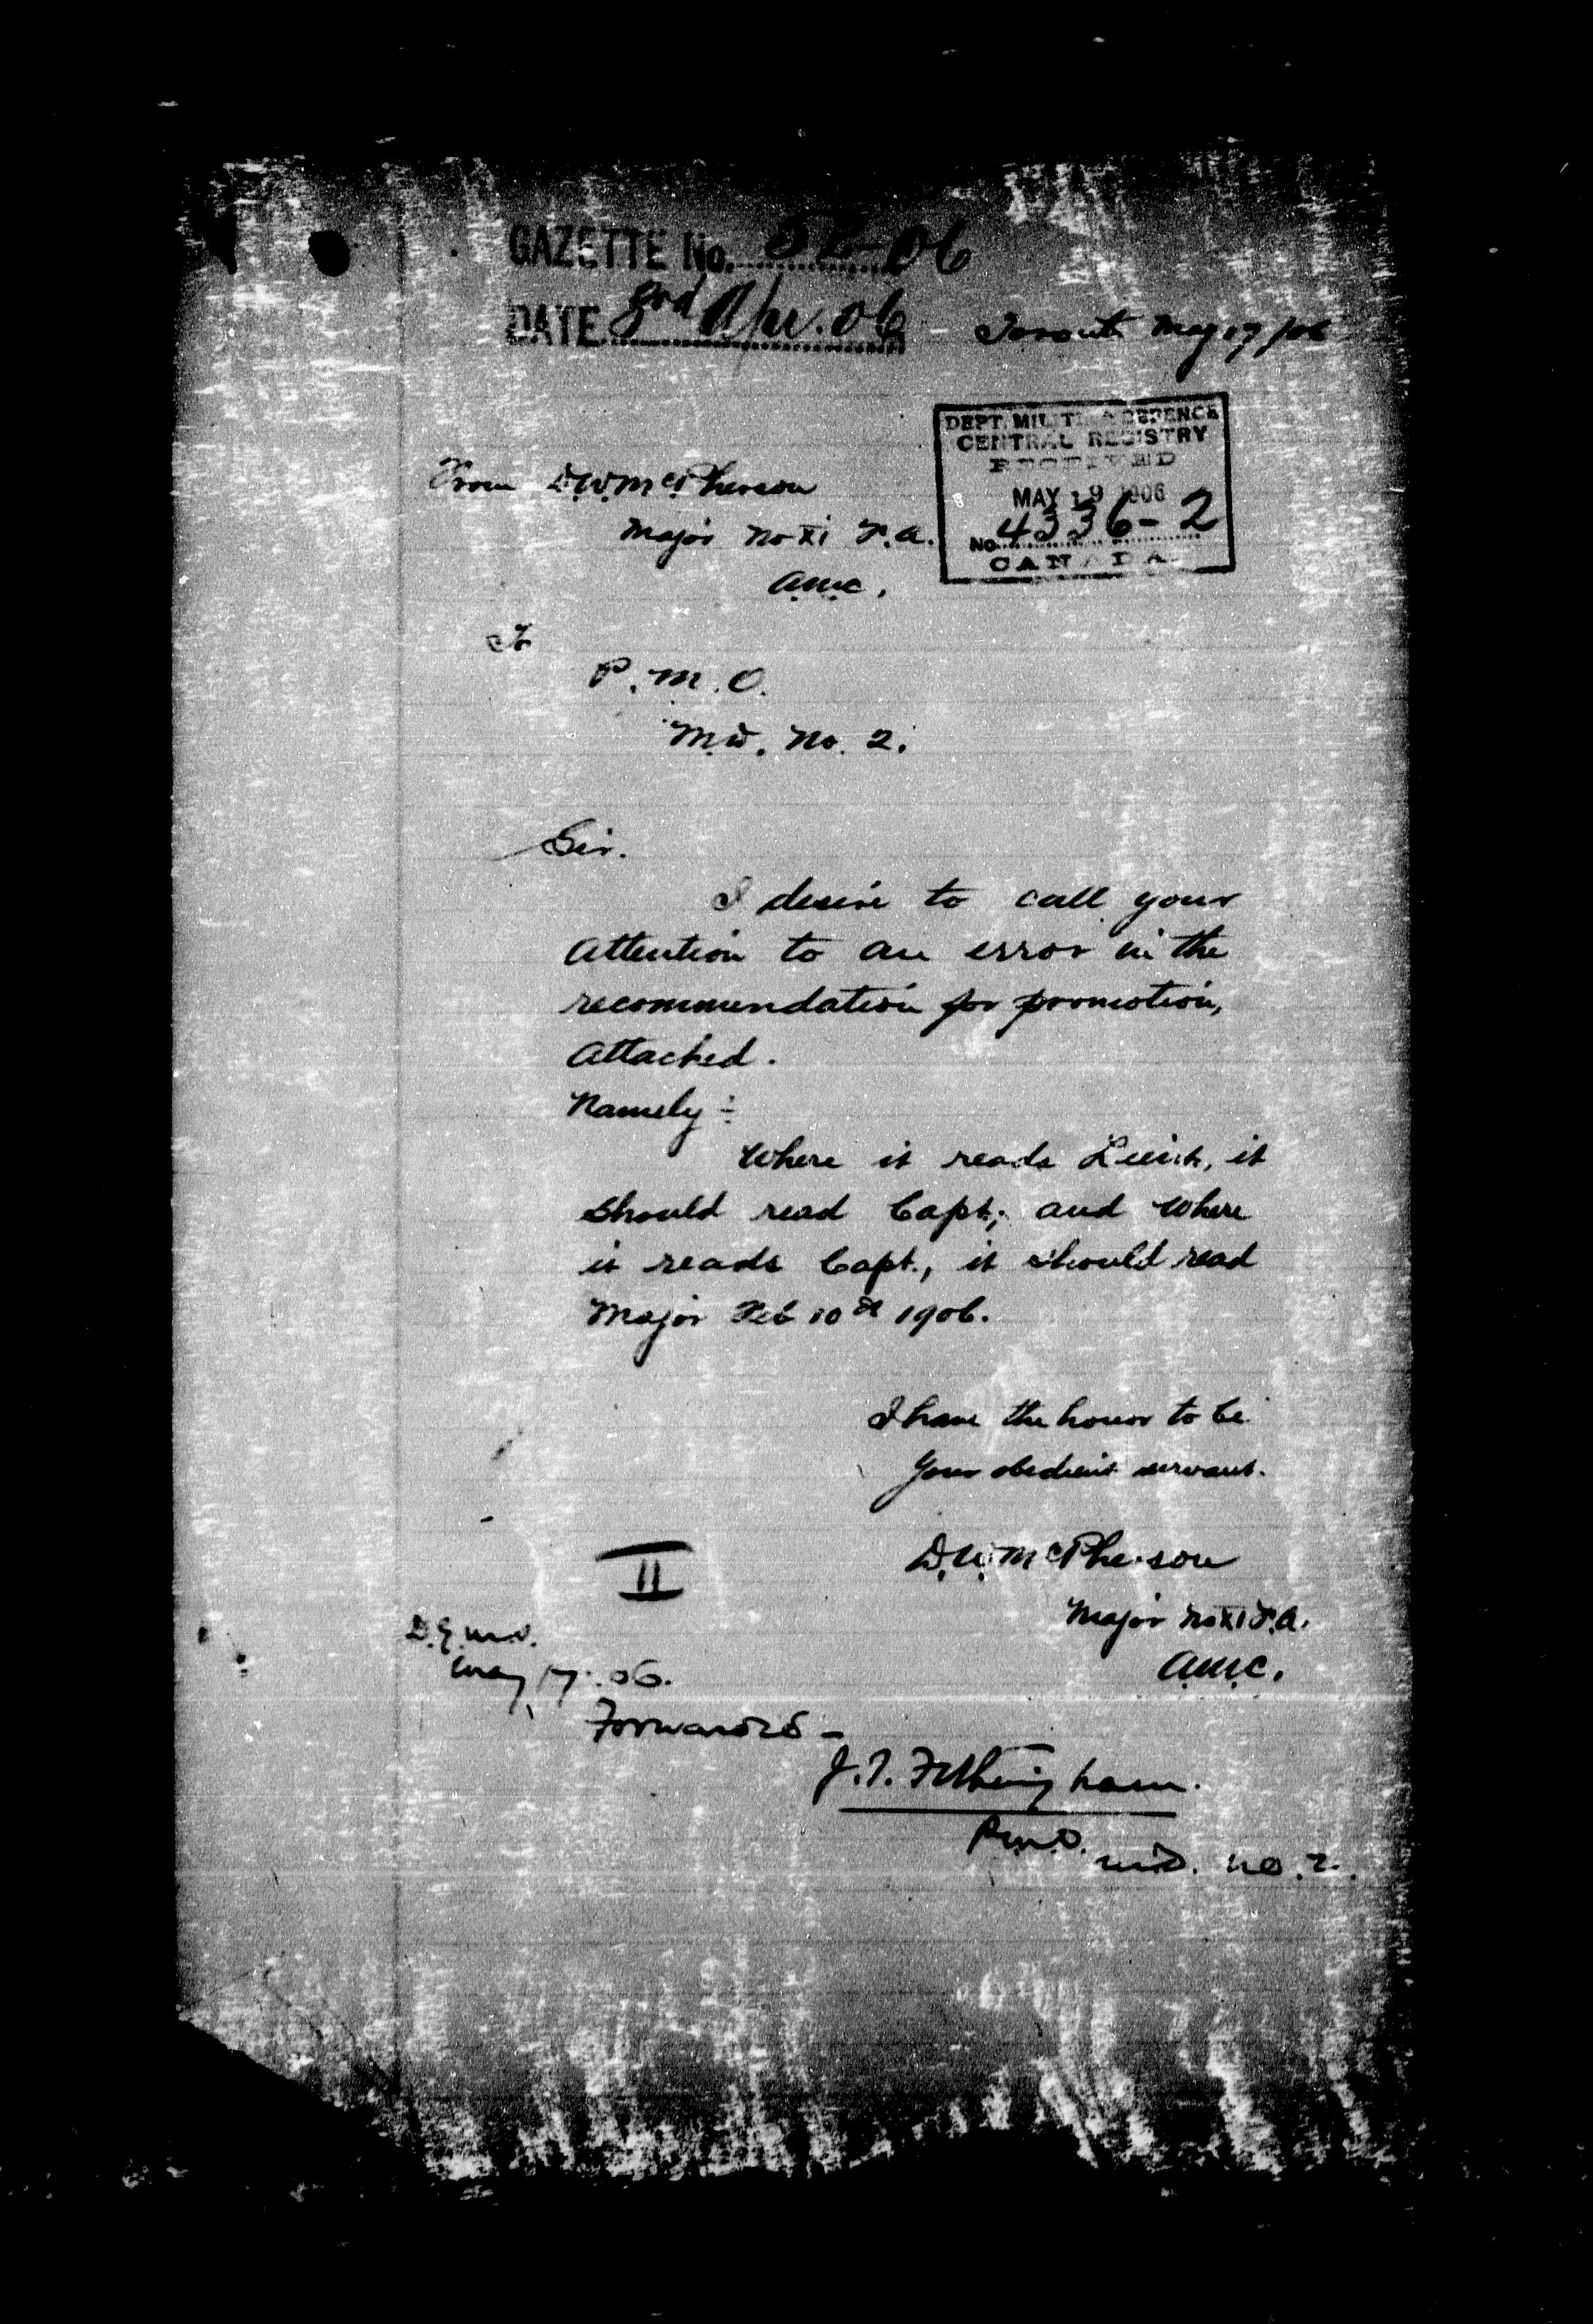 GAZETTE No. 52-06
DATE 3rd Apr. 06
Toronto May 17/06
DEPT. MILITIA & DEFENCE
CENTRAL REGISTRY
RECEIVED
MAY 19 1906
No. 4336-2
CANADA
From D.W. McPherson
Major No XI F.A.
A.M.C.
To
P.M.O.
M.D. No. 2.
Sir.
I desire to call your
attention to an error in the
recommendation for promotion,
attached.
Namely :-
Where it reads Lieut., it
should read Capt.; and where
it reads Capt., it should read
Major Feb 10th 1906.
I have the honor to be
Your obedient servant.
D.W. McPherson
Major No XI F.A.
A.M.C.
II
D.G.M.S.
May 17. 06.
Forwarded -
J.T. Fotheringham.
P.M.O.
M.D. No. 2.